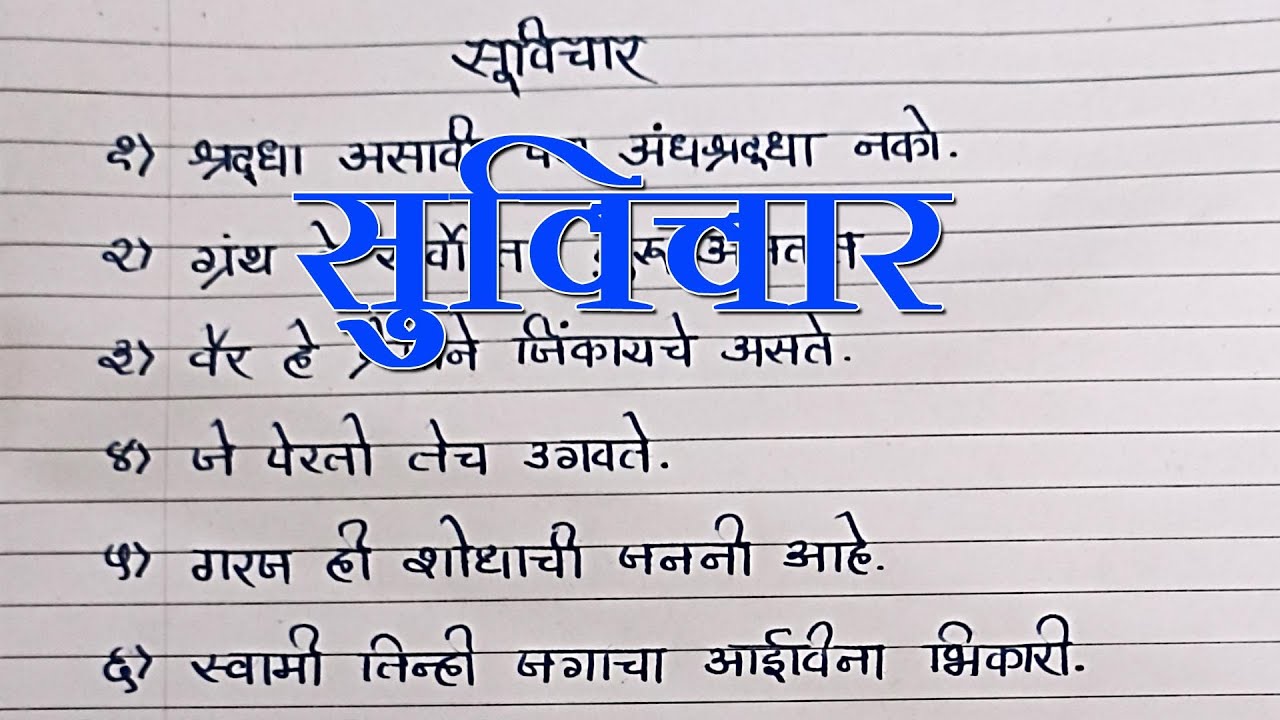 सूविचार
१) श्रद्धा असावी अंधश्रद्धा नको.
सुविचार
२) ग्रंथ
३) वैर हे जिंकायचे असते.
४) जे पेरतो तेच उगवते.
५) गरज ही शोधाची जननी आहे.
६) स्वामी तिन्ही जगाचा आईविना भिकारी.